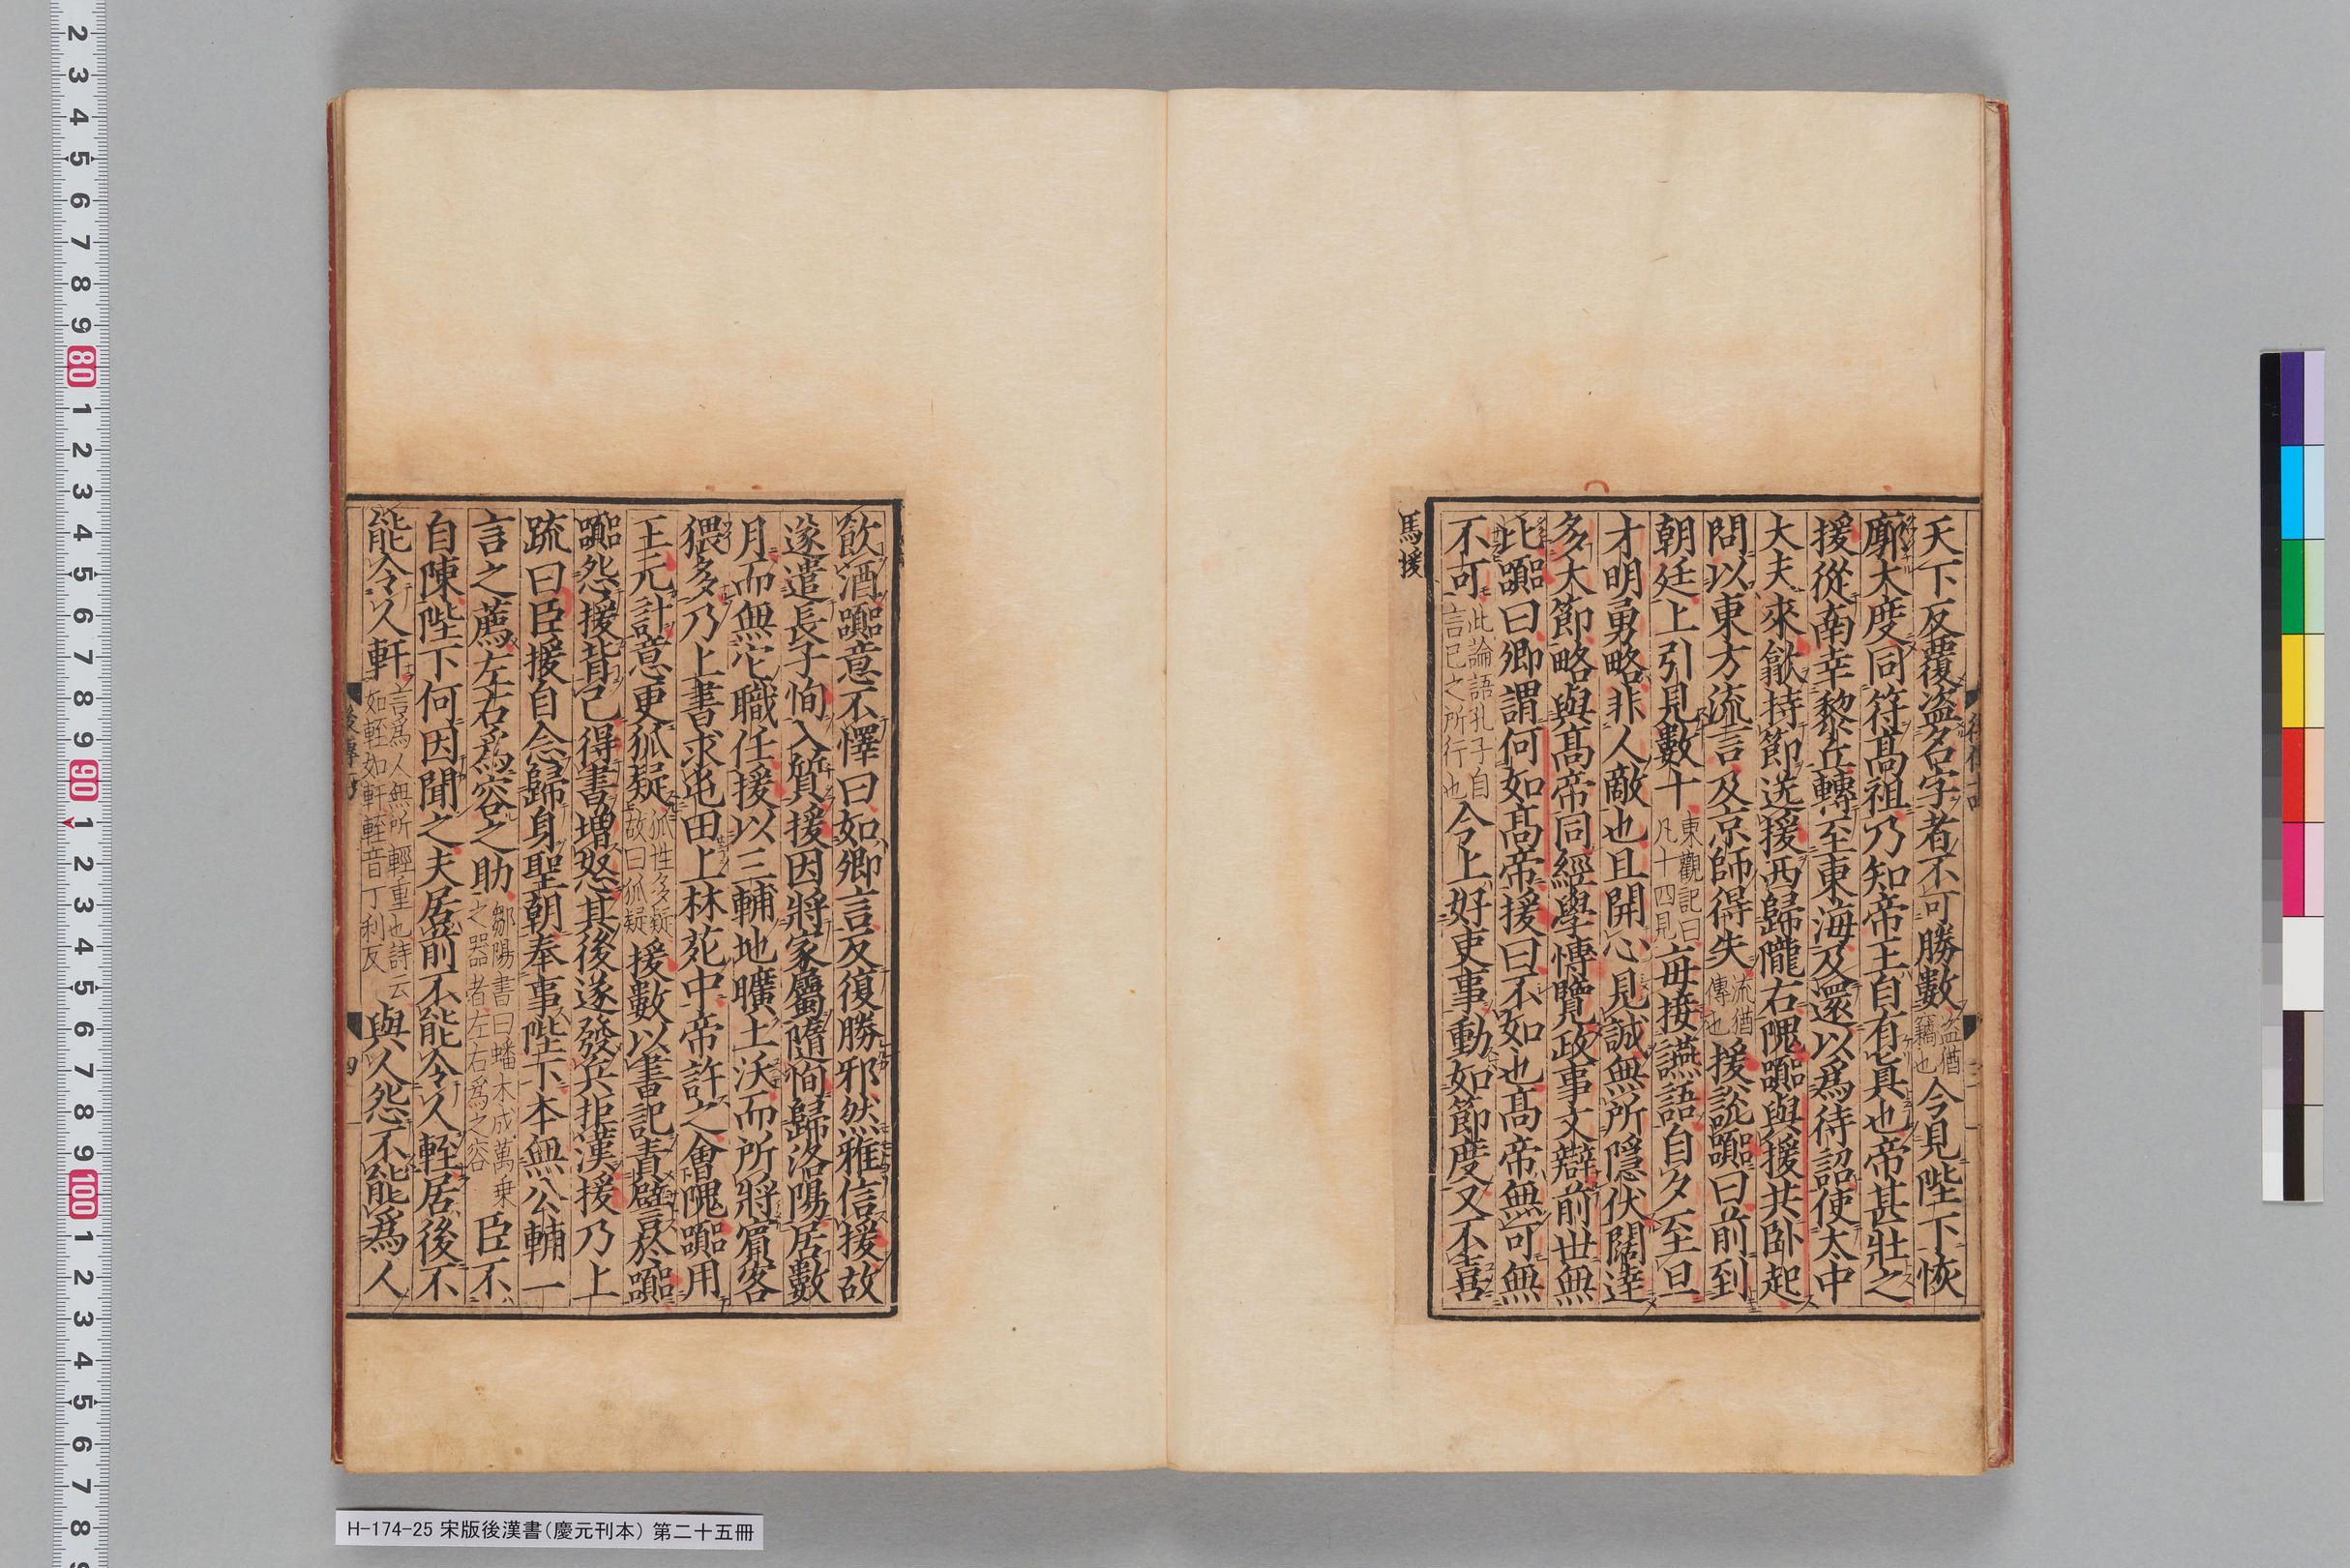 天下反覆盗名字者不可勝數盗猶竊也今見陛下恢
廓大度同符髙祖乃知帝王自有眞也帝甚壯之
援從南幸黎丘轉至東海及還以爲待詔使太中
大夫來歙持節送援西歸隴右隗囂與援共卧起
問以東方流言及京師得失流猶傳也援說囂曰前到
朝廷上引見數十東觀記曰凡十四見毎接讌語自夕至旦
才明勇略非人敵也且開心見誠無所隱伏闊達
多大節略與髙帝同經學博覽政事文辯前世無
比囂曰卿謂何如髙帝援曰不如也髙帝無可無
不可此論語孔子自言已之所行也今上好吏事動如節度又不喜
馬援
飲酒囂意不懌曰如卿言反復勝邪然雅信援故
遂遣長子恂入質援因將家屬隨恂歸洛陽居數
月而無它職任援以三輔地曠土沃而所將賓客
猥多乃上書求屯田上林苑中帝許之會隗囂用
王元計意更狐疑狐性多疑故曰狐疑援數以書記責譬於囂
囂怨援背己得書増怒其後遂發兵拒漢援乃上
疏曰臣援自念歸身聖朝奉事陛下本無公輔一
言之薦左右爲容之助鄒陽書曰蟠木成萬乗之器者左右爲之容臣不
自陳陛下何因聞之夫居前不能令人輊居後不
能令人軒言爲人無所輕重也詩云如輊如軒輊音丁利反與人怨不能爲人
四
H-174-25 宋版後漢書（慶元刊本） 第二十五冊
2 3 4 5 6 7 8 9 80 1 2 3 4 5 6 7 8 9 90 1 2 3 4 5 6 7 8 9 100 1 2 3 4 5 6 7 8